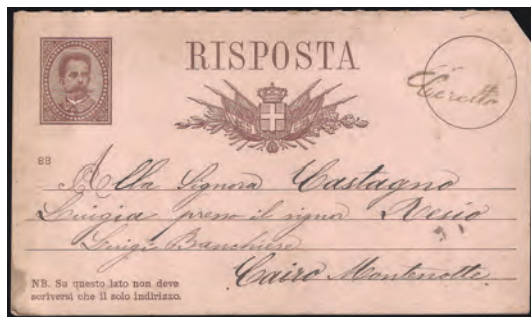 RISPOSTA
88
Alla Signora Castagno
Luigia presso il signor Resio
Luigi Banchiere
Cairo Montenotte
NB. Su questo lato non deve
scriversi che il solo indirizzo.